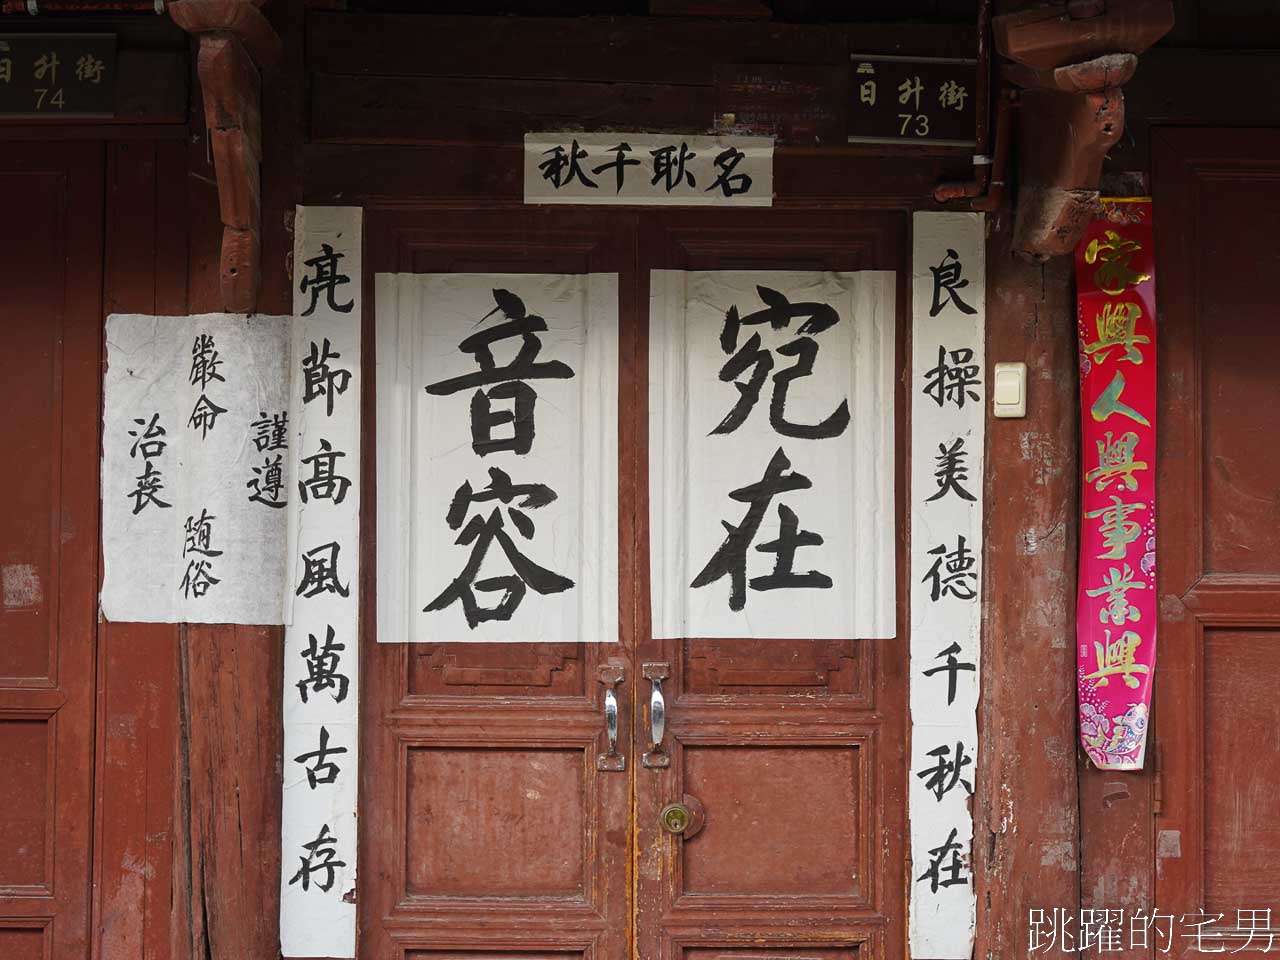 日升街
74
日升街
73
名耿千秋
良操美德千秋在
亮莭高風萬古存
宛在
音容
謹遵
嚴命 随俗
治丧
家興人興事業興
跳躍的宅男